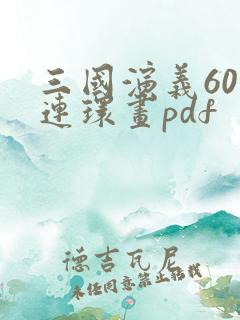 三國演義60
連環畫pdf
德吉瓦尼
未經同意禁止轉載